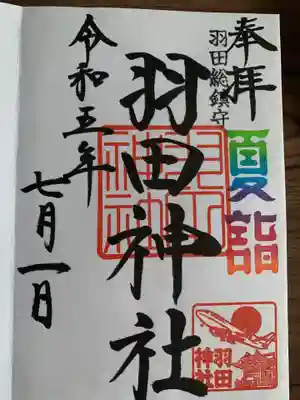 奉拝
羽田総鎮守
夏詣
羽田神社
羽田神社
羽田神社
令和五年
七月一日